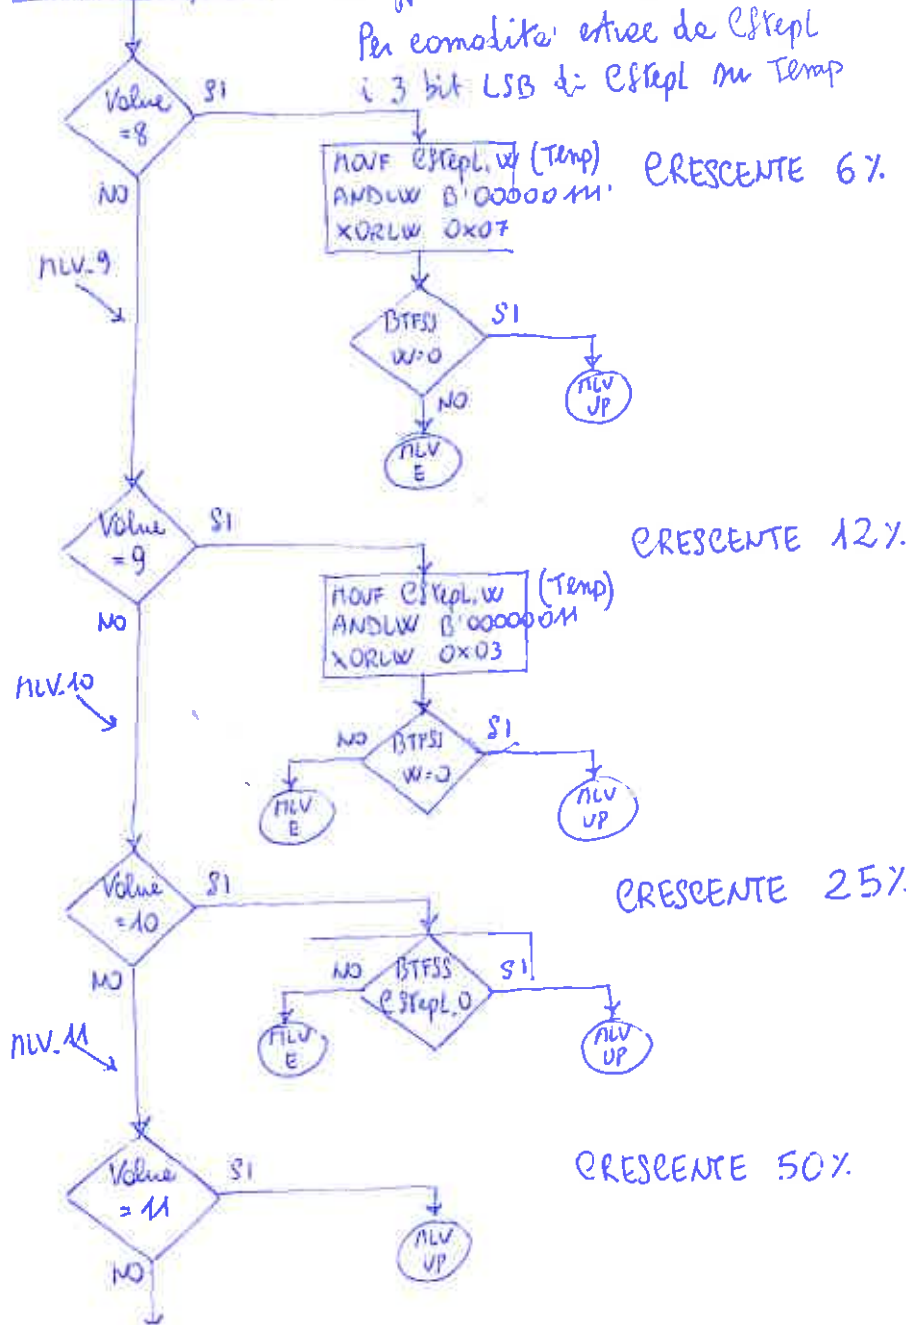 Per comodita' estrae da CStepL
i 3 bit LSB di CStepL su Temp
Value
=8
SI
NO
MOVF CStepL,W (Temp)
ANDLW B'00000111'
XORLW 0x07
CRESCENTE 6%
MLV_9
BTFSS
W=0
SI
NO
MLV
UP
MLV
E
Value
=9
SI
NO
CRESCENTE 12%
MOVF CStepL,W (Temp)
ANDLW B'00000011
XORLW 0x03
MLV_10
NO
BTFSS
W=0
SI
MLV
E
MLV
UP
Value
=10
SI
NO
CRESCENTE 25%
NO
BTFSS
CStepL,0
SI
MLV
E
MLV
UP
MLV_11
Value
=11
SI
NO
CRESCENTE 50%
MLV
UP